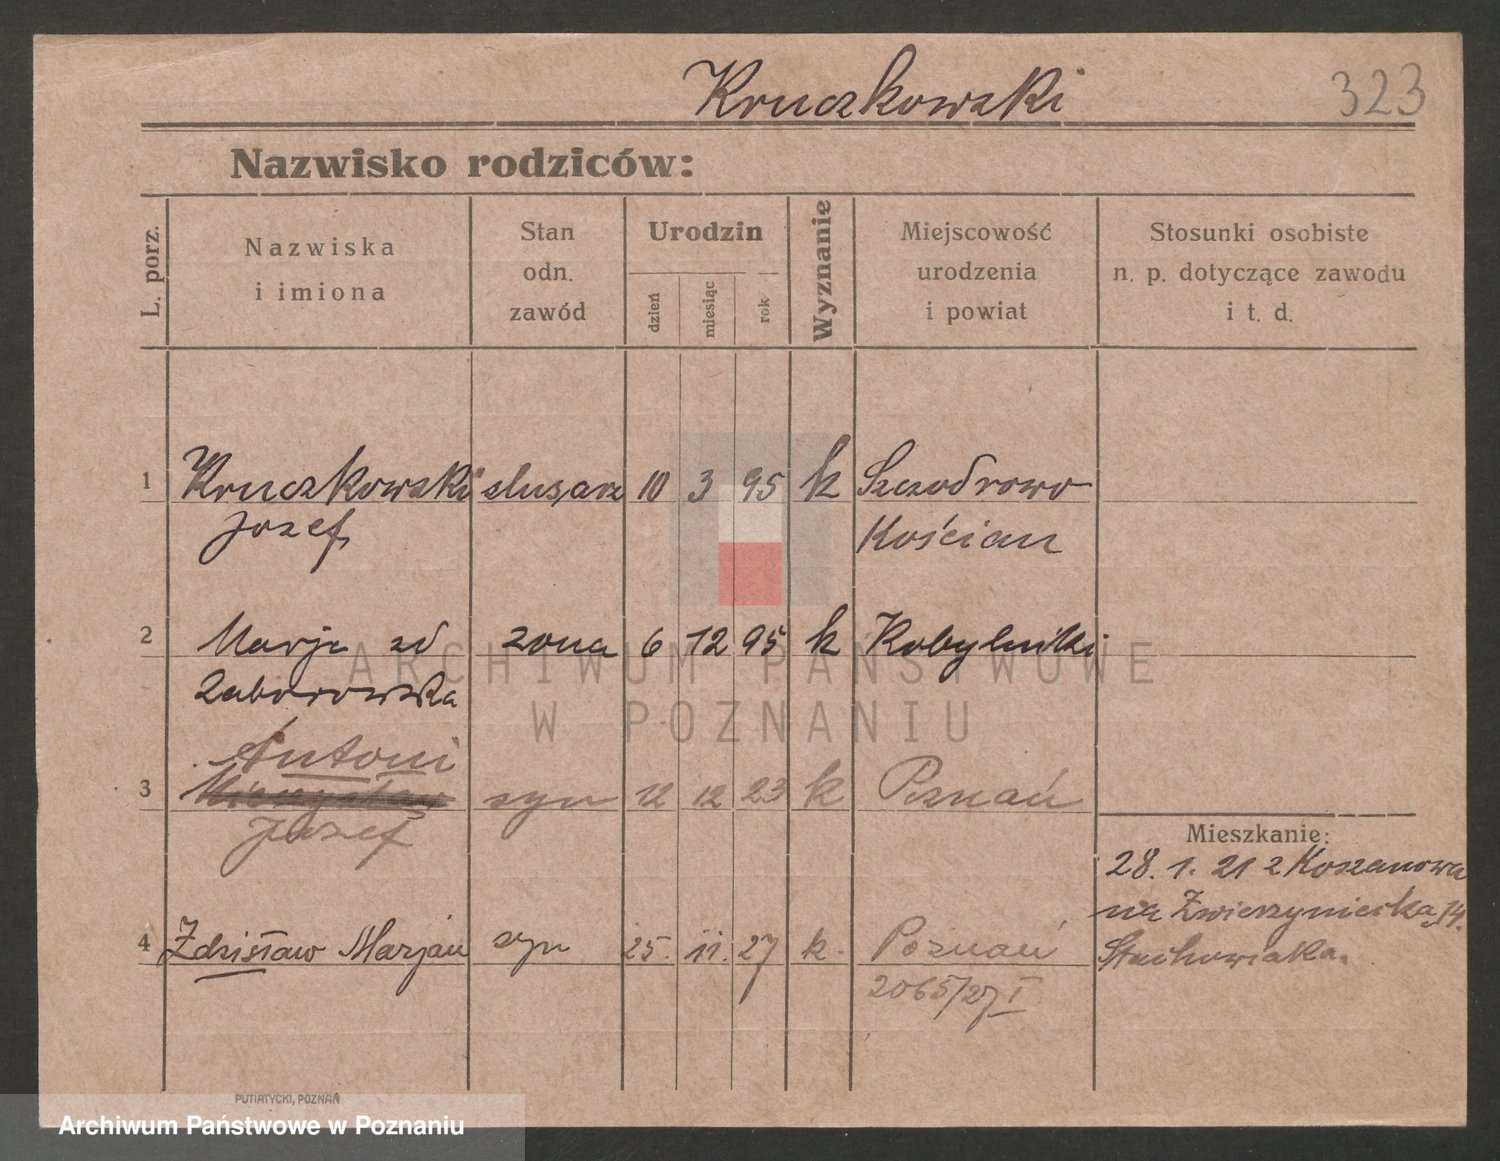 Kruczkowski
323
Nazwisko rodziców:
L. porz.
Nazwiska
i imiona
Stan
odn.
zawód
Urodzin
dzień
miesiąc
rok
Wyznanie
Miejscowość
urodzenia
i powiat
Stosunki osobiste
n. p. dotyczące zawodu
i t. d.
1 Kruczkowski slusarz 10 3 95 k Szczodrowo
Jozef Kościan
2 Marja zd zona 6 12 95 k Kobylniki
Zaborowska
Antoni
3 syn 12 12 23 k Poznań
Jozef
Mieszkanie:
28. 1. 21 z Koszanowa
na Zwierzyniecka 14.
Stachowiaka.
4 Zdzisław Marjan syn 25. 11. 27 k. Poznań
2065/27 I
PUTIATYCKI, POZNAŃ
ARCHIWUM PAŃSTWOWE
W POZNANIU
Archiwum Państwowe w Poznaniu